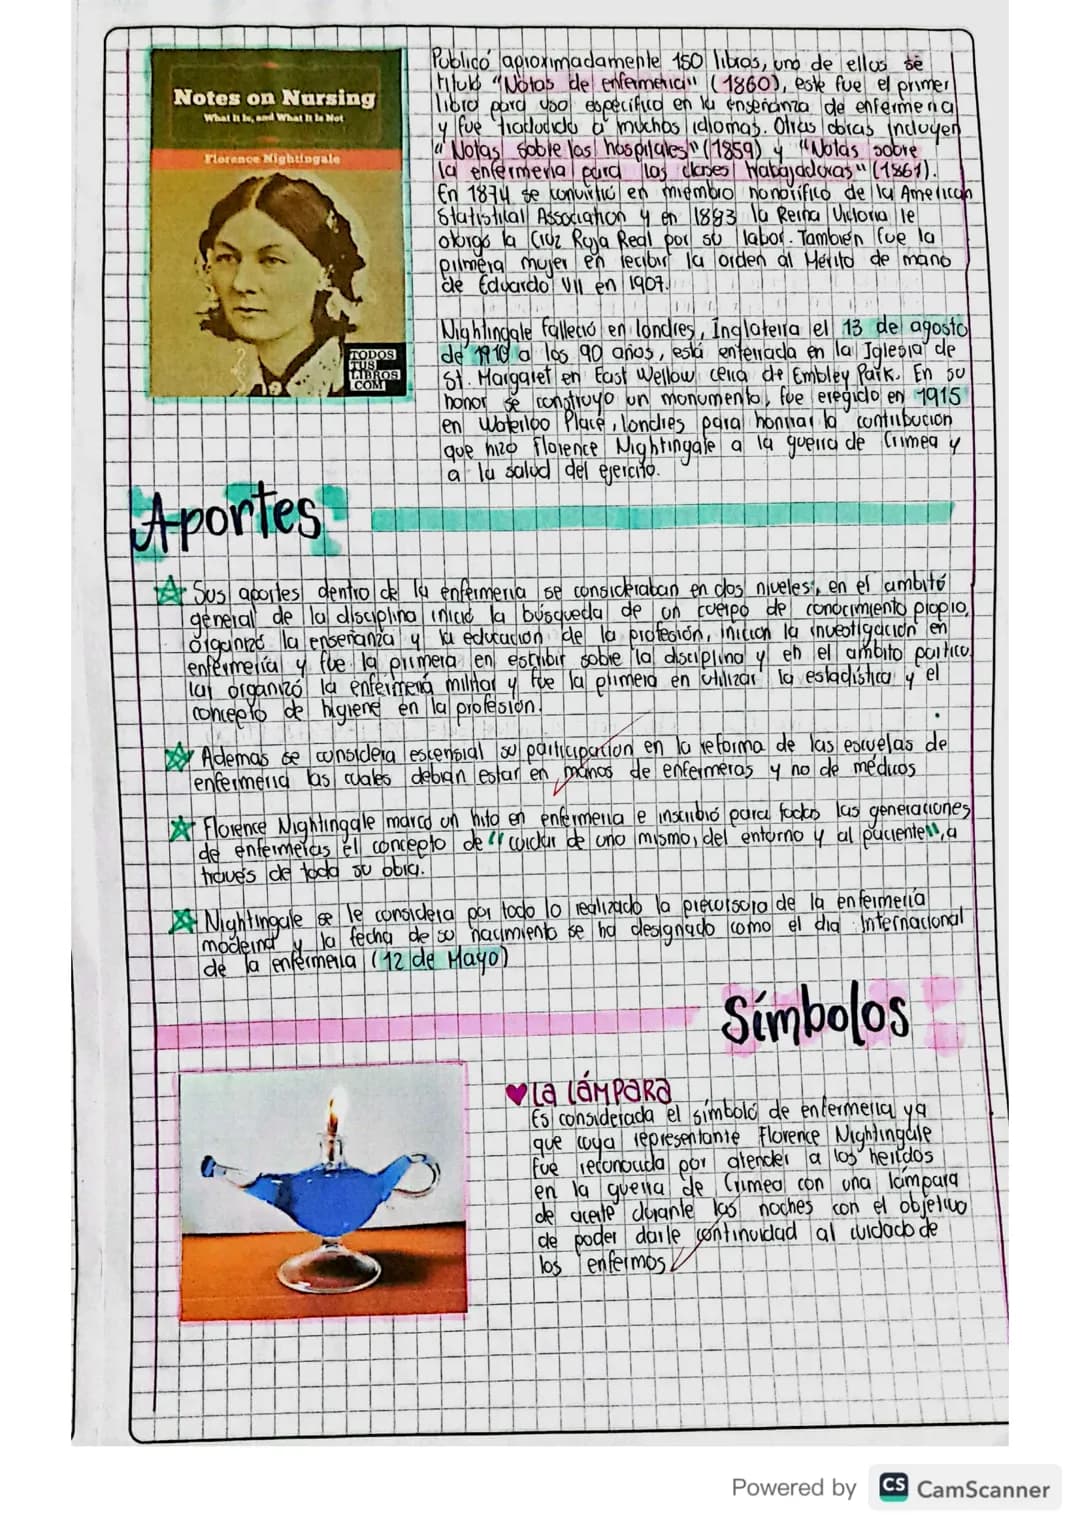 Notes on Nursing
What It Is, and What It Is Not
Florence Nightingale
TODOS
TUS
LIBROS
.COM
Publicó aproximadamente 150 libros, uno de ellos se
tituló "Notas de enfermeria" (1860), este fue el primer
libro para uso especifico en la enseñanza de enfermeria
y fue traducido a muchos idiomas. Otras obras incluyen
"Notas sobre los hospitales" (1859) y "Notas sobre
la enfermeria para las clases trabajadoras" (1861).
En 1874 se convirtió en miembro honorifico de la American
Statistical Association y en 1883 la Reina Victoria le
otorgó la Cruz Roja Real por su labor. También fue la
primera mujer en recibir la orden al Mérito de mano
de Eduardo VII en 1907.
Nightingale falleció en londres, Inglaterra el 13 de agosto
de 1910 a los 90 años, está enterrada en la Iglesia de
St. Margaret en East Wellow cerca de Embley Park. En su
honor se construyo un monumento, fue eregido en 1915
en Waterloo Place, londres para honrrar la contribucion
que hizo Florence Nightingale a la guerra de Crimea y
a la salud del ejercito.
Aportes
Sus aportes dentro de la enfermeria se consideraban en dos niveles; en el ambito
general de la disciplina inició la búsqueda de un cuerpo de conocimiento propio,
organizó la enseñanza y la educacion de la profesión, inicion la investigación en
enfermería y fue la primera en escribir sobre la disciplina y en el ambito particu
lar organizó la enfermería militar y fue la primera en utilizar la estadística y el
concepto de higiene en la profesión.
Ademas se considera escensial su participacion en la reforma de las escuelas de
enfermeria las cuales debian estar en manos de enfermeras y no de médicos
Florence Nightingale marco un hito en enfermeria e inscribió para todas las generaciones
de enfermeras el concepto de "cuidar de uno mismo, del entorno y al paciente", a
través de toda su obra.
Nightingale se le considera por todo lo realizado la precursora de la enfermería
moderna y la fecha de su nacimiento se ha designado como el dia Internacional
de la enfermeria (12 de Mayo)
Símbolos
La LÁMPARA
Es considerada el símbolo de enfermeria ya
que cuya representante Florence Nightingale
fue reconocida por atender a los heridos
en la guerra de Crimea con una lámpara
de aceite durante las noches con el objetivo
de poder darle continuidad al cuidado de
los enfermos
Powered by CS CamScanner